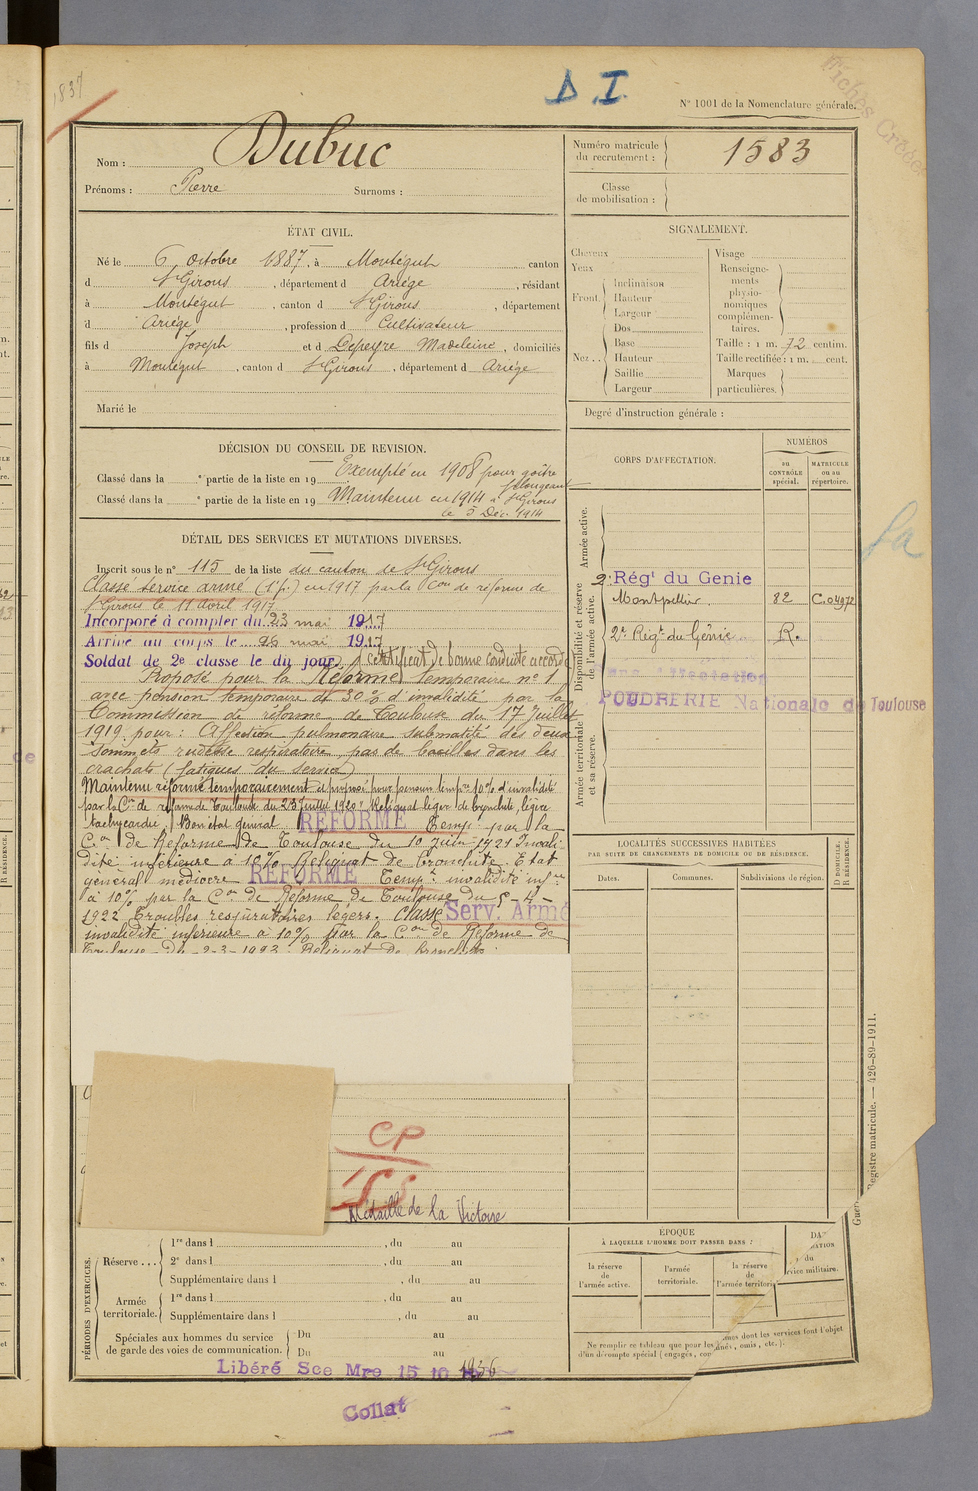 1837
D I
N° 1001 de la Nomenclature générale.
Fiches Créées
Nom : Dubuc
Prénoms : Pierre Surnoms :
Numéro matricule du recrutement : 1583
Classe de mobilisation :
ÉTAT CIVIL.
Né le 6 Octobre 1887, à Montégut canton
d St Girons, département d Ariège, résidant
à Montégut, canton d St Girons, département
d Ariège, profession d Cultivateur
fils d Joseph et d Depeyre Madeleine, domiciliés
à Montégut, canton d St Girons, département d Ariège
Marié le
SIGNALEMENT.
Cheveux
Yeux
Front. Inclinaison
Hauteur
Largeur
Nez.. Dos
Base
Hauteur
Saillie
Largeur
Visage
Renseignements physionomiques complémentaires.
Taille : 1 m. 72 centim.
Taille rectifiée : 1 m. cent.
Marques particulières.
Degré d'instruction générale :
DÉCISION DU CONSEIL DE REVISION.
Classé dans la e partie de la liste en 19 Exempté en 1908 pour goître
Classé dans la e partie de la liste en 19 Maintenu en 1914 à St Girons
le 5 Déc. 1914
DÉTAIL DES SERVICES ET MUTATIONS DIVERSES.
Inscrit sous le n° 115 de la liste du canton de St Girons
Classé service armé (1e p.) en 1917 par la Con de réforme de
St Girons le 11 Avril 1917
Incorporé à compter du 23 mai 1917
Arrivé au corps le 26 mai 1917
Soldat de 2e classe le du jour (certificat de bonne conduite accordé)
Proposé pour la Réforme temporaire n° 1
avec pension temporaire de 30% d'invalidité par la
Commission de réforme de Toulouse du 17 Juillet
1919 pour : Affection pulmonaire submatité des deux
sommets rudesse respiratoire pas de bacilles dans les
crachats (fatigues du service)
Maintenu réformé temporairement et proposé pour pension tempre 10% d'invalidité
par la Con de réforme de Toulouse du 23 Juillet 1920 : Reliquat léger de bronchite, légère
tachycardie. Bon état général RÉFORMÉ Temp. par la
Con de Réforme de Toulouse du 10 Juin 1921 Invali
dité inférieure à 10% Reliquat de bronchite. Etat
général médiocre RÉFORMÉ Tempt invalidité infre
à 10% par la Con de Réforme de Toulouse du 5-4-
1922 Troubles respiratoires légers. Classé Serv. Armé
invalidité inférieure à 10% par la Con de Réforme de
Toulouse du 2-3-1923 Reliquat de bronchite.
CP
Médaille de la Victoire
CORPS D'AFFECTATION.
NUMÉROS
au CONTRÔLE spécial.
MATRICULE ou au répertoire.
Armée active.
Disponibilité et réserve de l'armée active.
Armée territoriale et sa réserve.
2e Régt du Génie
Montpellier 82 C.04972
2e Régt du Génie R.
Sans Affectation
POUDRERIE Nationale de Toulouse
LOCALITÉS SUCCESSIVES HABITÉES
PAR SUITE DE CHANGEMENTS DE DOMICILE OU DE RÉSIDENCE.
Dates.
Communes.
Subdivisions de région.
D DOMICILE. R RÉSIDENCE.
PÉRIODES D'EXERCICES.
Réserve... 1re dans l , du au
2e dans l , du au
Supplémentaire dans l , du au
Armée territoriale. 1re dans l , du au
Supplémentaire dans l , du au
Spéciales aux hommes du service de garde des voies de communication. Du au
Du au
ÉPOQUE
À LAQUELLE L'HOMME DOIT PASSER DANS :
la réserve de l'armée active.
l'armée territoriale.
la réserve de l'armée territoria
Ne remplir ce tableau que pour les
d'un décompte spécial (engagés,
mes dont les services font l'objet
nés, omis, etc.).
Libéré Sce Mre 15 10 1936
Collat
Registre matricule. — 426-89-1911.